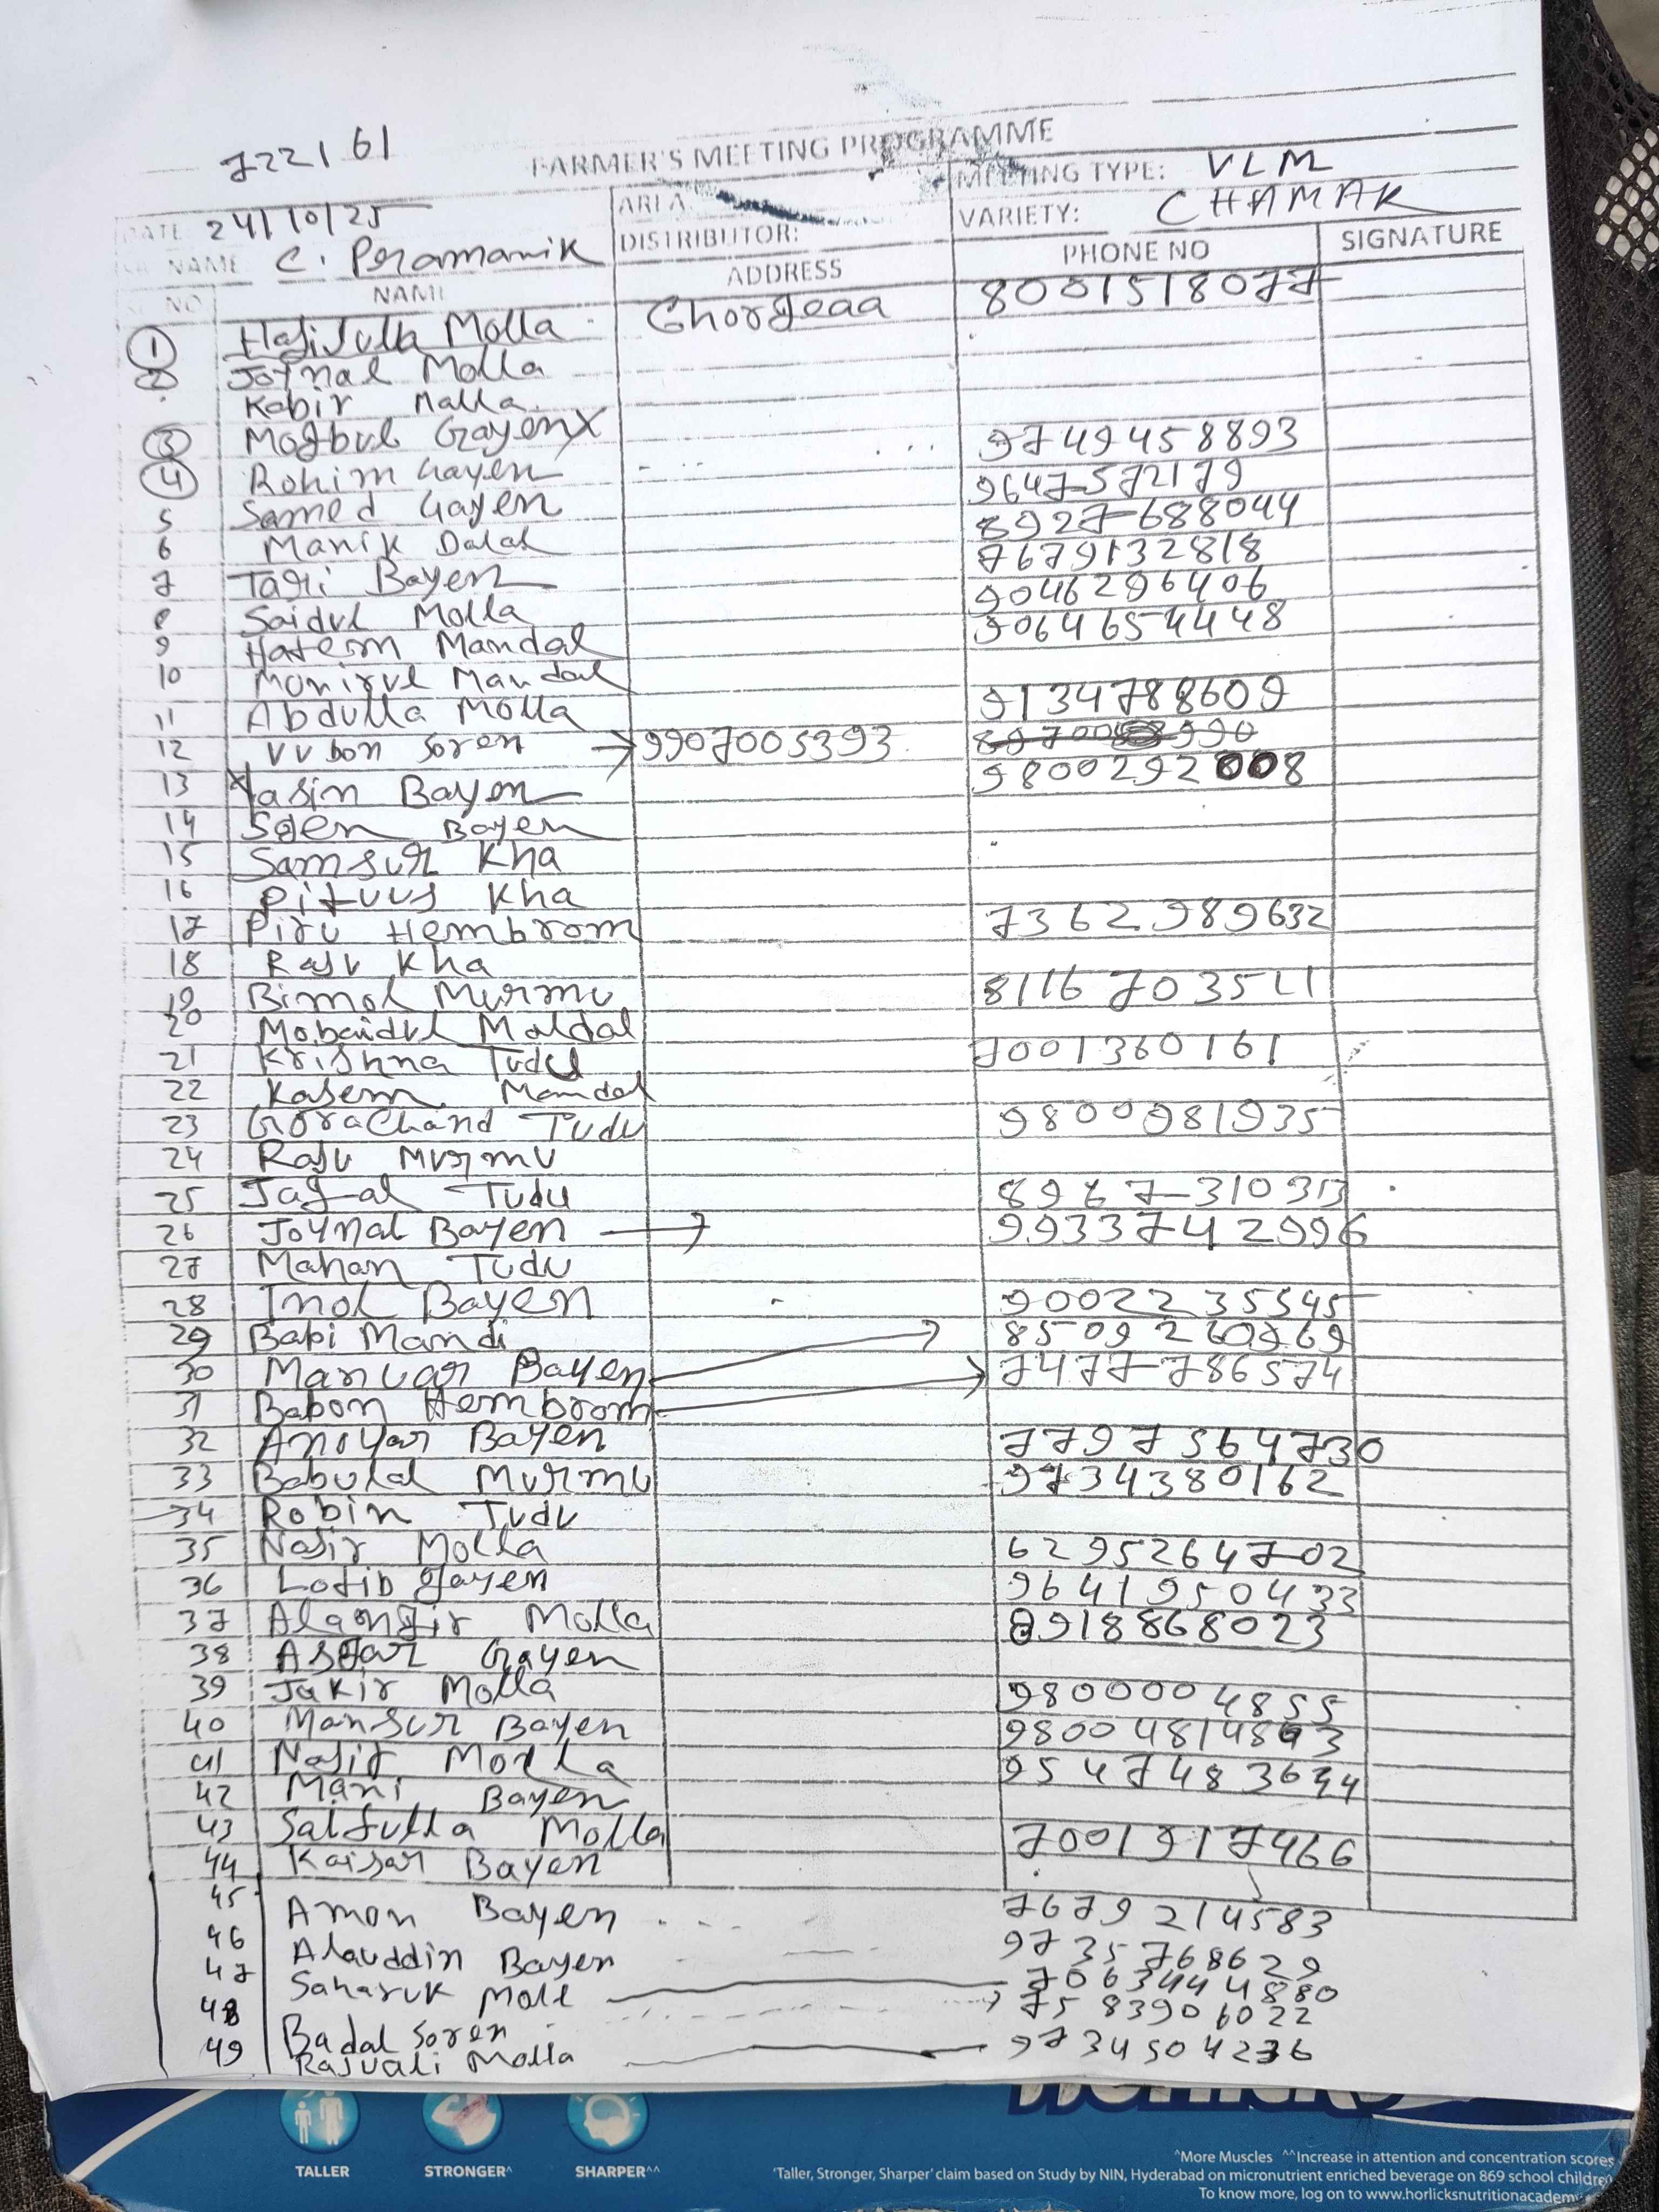 722161
FARMER'S MEETING PROGRAMME
DATE 24/10/25 AREA MEETING TYPE: VLM
NAME C. Peramanik DISTRIBUTOR: VARIETY: CHAMAK
NO NAME ADDRESS PHONE NO SIGNATURE
1 Molla Ghorgeaa 8001518077
2 Joynal Molla
Kabir Malla
3 Mogbul Gayen X 9749458893
4 Rohim Gayen 9647572179
5 Samed Gayen 8927688044
6 Manik Dalal 7679132818
7 Tagi Bayen 9046296406
8 Saidul Molla 9064654448
9 Hatem Mandal
10 Monirul Mandal 9134788609
11 Abdulla Molla
12 VVbon Soren → 9907005393
13 Yasin Bayen 9800292008
14 Sgen Bayen
15 Samsur Kha
16 Kha
17 Piru Hembrom 7362989632
18 Raju Kha
19 Bimol Murmu 8116703511
20 Mobaidul Moldal
21 Krishna Tudu 7001360161
22 Kasem Mandal
23 Gorachand Tudu 9800981935
24 Raju Murmu
25 Jagal Tudu 8967310313
26 Joynal Bayen → 9933742996
27 Mahan Tudu
28 Inol Bayen 9002235545
29 Babi Mandi 8509260769
30 Manuar Bayen 7477786574
31 Babon Hembrom
32 Anoyar Bayen 7797564730
33 Babulal Murmu 9734380162
34 Robin Tudu
35 Nasir Molla 6295264702
36 Lotib Gayen 9641950433
37 Alamgir Molla 8918868023
38 Asgar Gayen
39 Jakir Molla 9800004855
40 Mansur Bayen
41 Nasir Molla 9547483644
42 Mani Bayen
43 Saifulla Molla 7001917466
44 Kaisar Bayen
45 Amon Bayen 7679214583
46 Alauddin Bayen 9735768629
47 Saharuk Moll 7063444880
48 Badal Soren 7583906022
49 Rajuali Molla 9734504236
TALLER STRONGER^ SHARPER^^
^More Muscles ^^Increase in attention and concentration scores
'Taller, Stronger, Sharper' claim based on Study by NIN, Hyderabad on micronutrient enriched beverage on 869 school children
To know more, log on to www.horlicksnutritionacademy